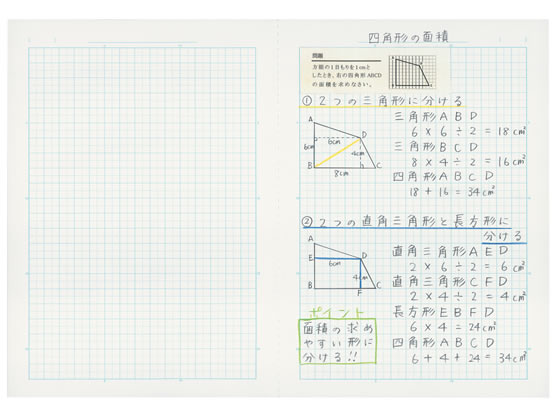 四角形の面積
問題
方眼の1目もりを1cmと
したとき、右の四角形ABCD
の面積を求めなさい。
① 2つの三角形に分ける
三角形ABD
6×6÷2=18cm²
三角形BCD
8×4÷2=16cm²
四角形ABCD
18+16=34cm²
A
6cm
6cm
D
4cm
B
8cm
C
② 2つの直角三角形と長方形に
分ける
直角三角形AED
2×6÷2=6cm²
直角三角形CFD
2×4÷2=4cm²
長方形EBFD
6×4=24cm²
四角形ABCD
6+4+24=34cm²
A
E
6cm
D
4cm
B
F
C
ポイント
面積の求め
やすい形に
分ける!!